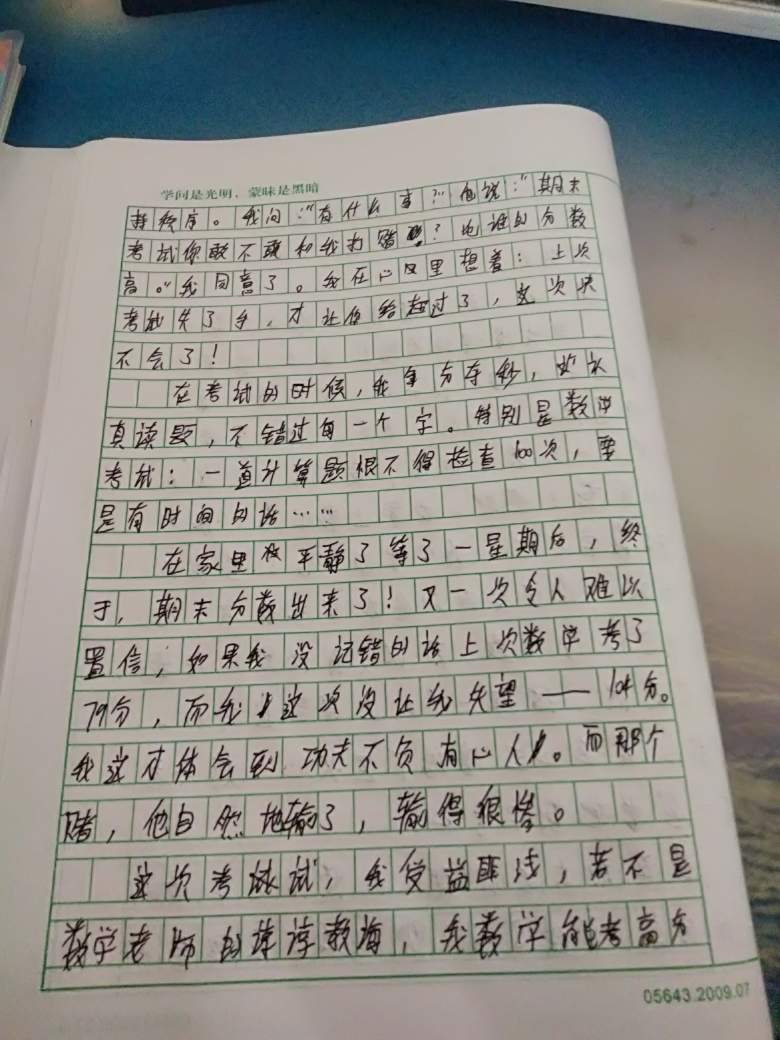 学问是光明，蒙昧是黑暗
持秩序。我问："有什么事？"他说："期末
考试你敢不敢和我打赌？比谁的分数
高。"我同意了。我在心里想着：上次
考试失了手，才让你给超过了，这次决
不会了！
在考试的时候，我争分夺秒，认
真读题，不错过每一个字。特别是数学
考试：一道计算题恨不得检查100次，要
是有时间的话……
在家里平静了等了一星期后，终
于，期末分数出来了！又一次令人难以
置信，如果我没记错的话上次数学考了
79分，而我这次没让我失望——104分。
我这才体会到功夫不负有心人。而那个
赌，他自然地输了，输得很惨。
这次考试试，我受益匪浅，若不是
数学老师的谆谆教海，我数学能考高分
05643.2009.07